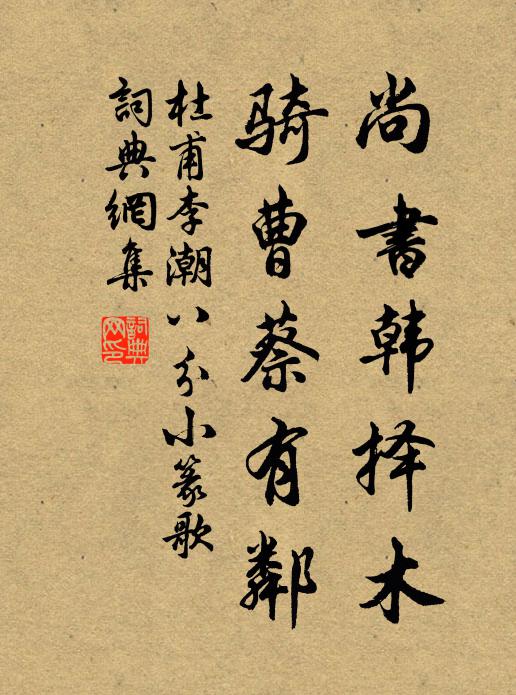 尚書韩择木
骑曹蔡有鄰
杜甫李潮八分小篆歌
詞典網集
詞典网印